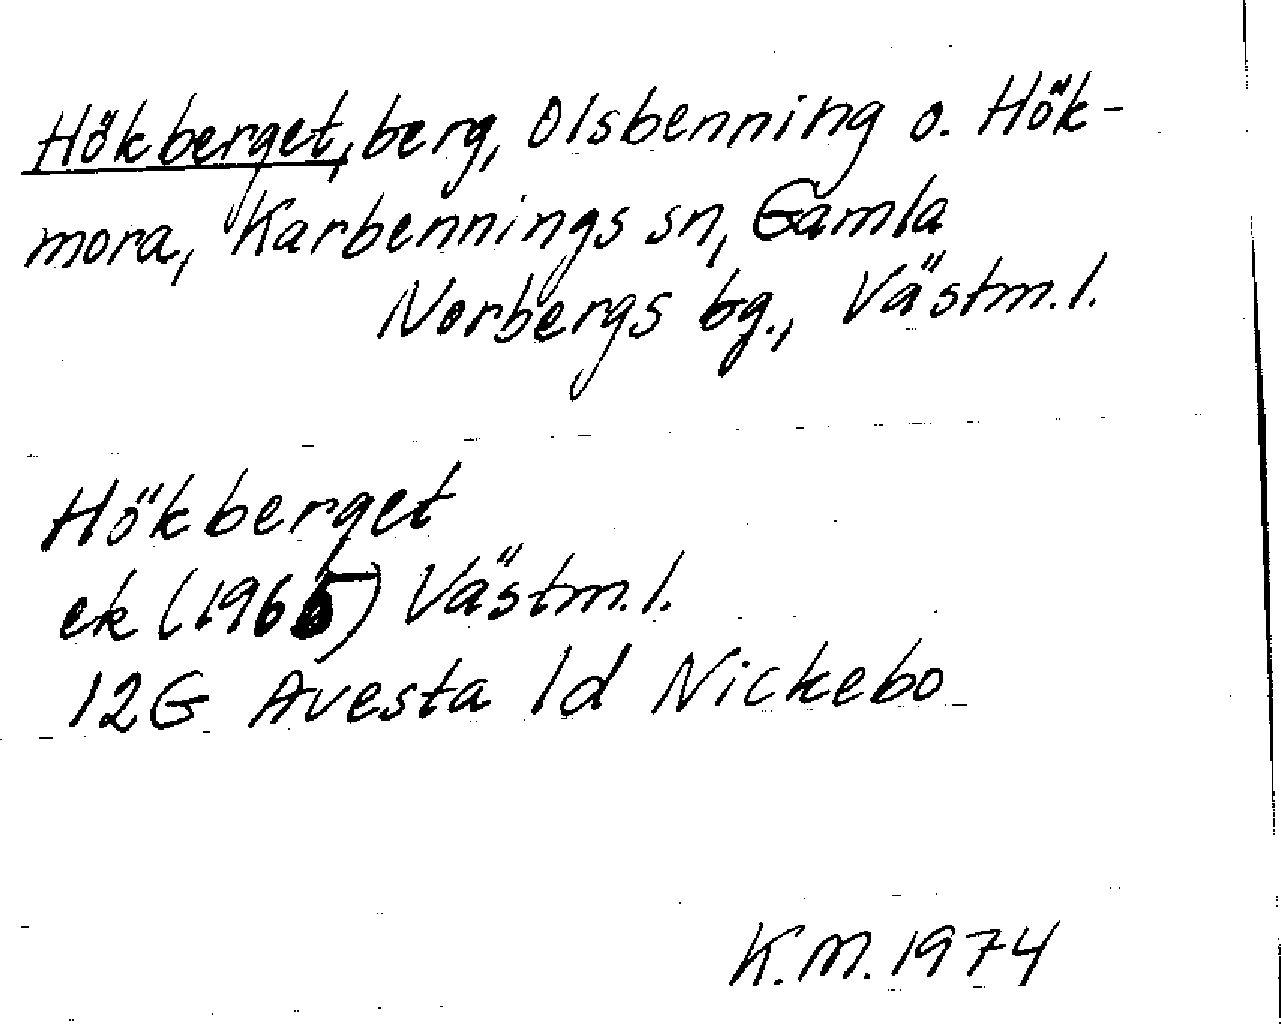 Hökberget, berg, Olsbenning o. Hök-
mora, Karbennings sn, Gamla
Norbergs bg., Västm.l.
Hökberget
ek (1965) Västm.l.
12G Avesta 1d Nickebo
K.M. 1974